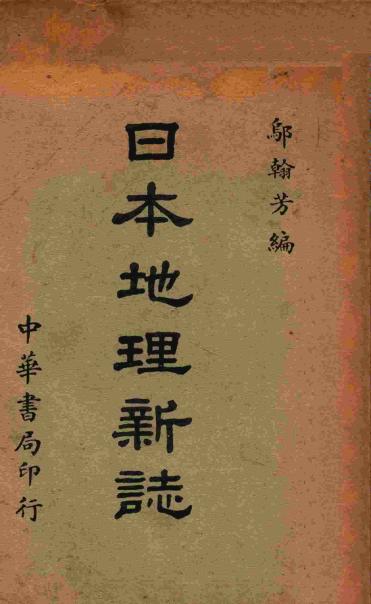 鄔翰芳編
日本地理新誌
中華書局印行